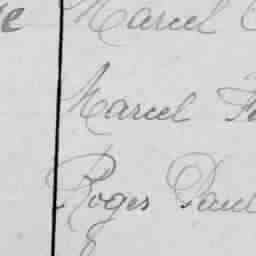 Marcel
Marcel
Roger Paul